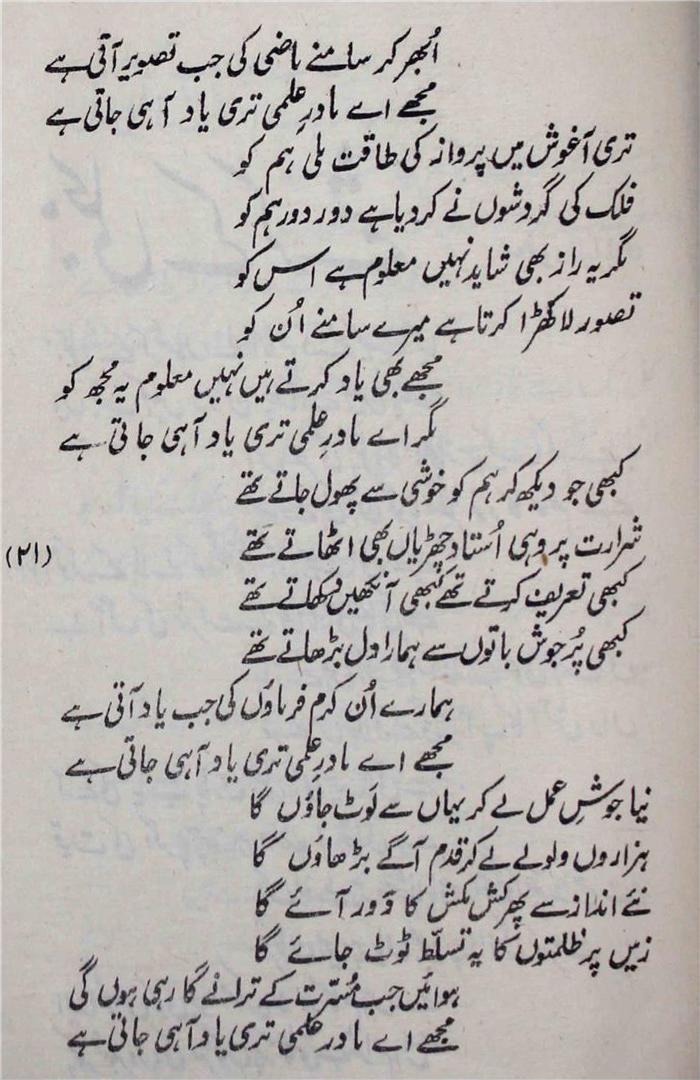 اُبھر کر سامنے ماضی کی جب تصویر آتی ہے
مجھے اے مادرِ علمی تری یاد آ ہی جاتی ہے
تری آغوش میں پرواز کی طاقت ملی ہم کو
فلک کی گردشوں نے کر دیا ہے دور دور ہم کو
مگر یہ راز بھی شاید نہیں معلوم ہے اس کو
تصور لا کھڑا کرتا ہے میرے سامنے اُن کو
مجھے بھی یاد کرتے ہیں نہیں معلوم یہ مجھ کو
مگر اے مادرِ علمی تری یاد آ ہی جاتی ہے
کبھی جو دیکھ کر ہم کو خوشی سے پھول جاتے تھے
شرارت پر وہی اُستاد چھڑیاں بھی اٹھاتے تھے
(۲۱)
کبھی تعریف کرتے تھے کبھی آنکھیں دکھاتے تھے
کبھی پُر جوش باتوں سے ہمارا دل بڑھاتے تھے
ہمارے اُن کرم فرماؤں کی جب یاد آتی ہے
مجھے اے مادرِ علمی تری یاد آ ہی جاتی ہے
نیا جوشِ عمل لے کر یہاں سے لَوٹ جاؤں گا
ہزاروں ولولے لے کر قدم آگے بڑھاؤں گا
نئے انداز سے پھر کش مکش کا دَور آئے گا
زمیں پر ظلمتوں کا یہ تسلّط ٹوٹ جائے گا
ہوائیں جب مُسّرت کے ترانے گا رہی ہوں گی
مجھے اے مادرِ علمی تری یاد آ ہی جاتی ہے